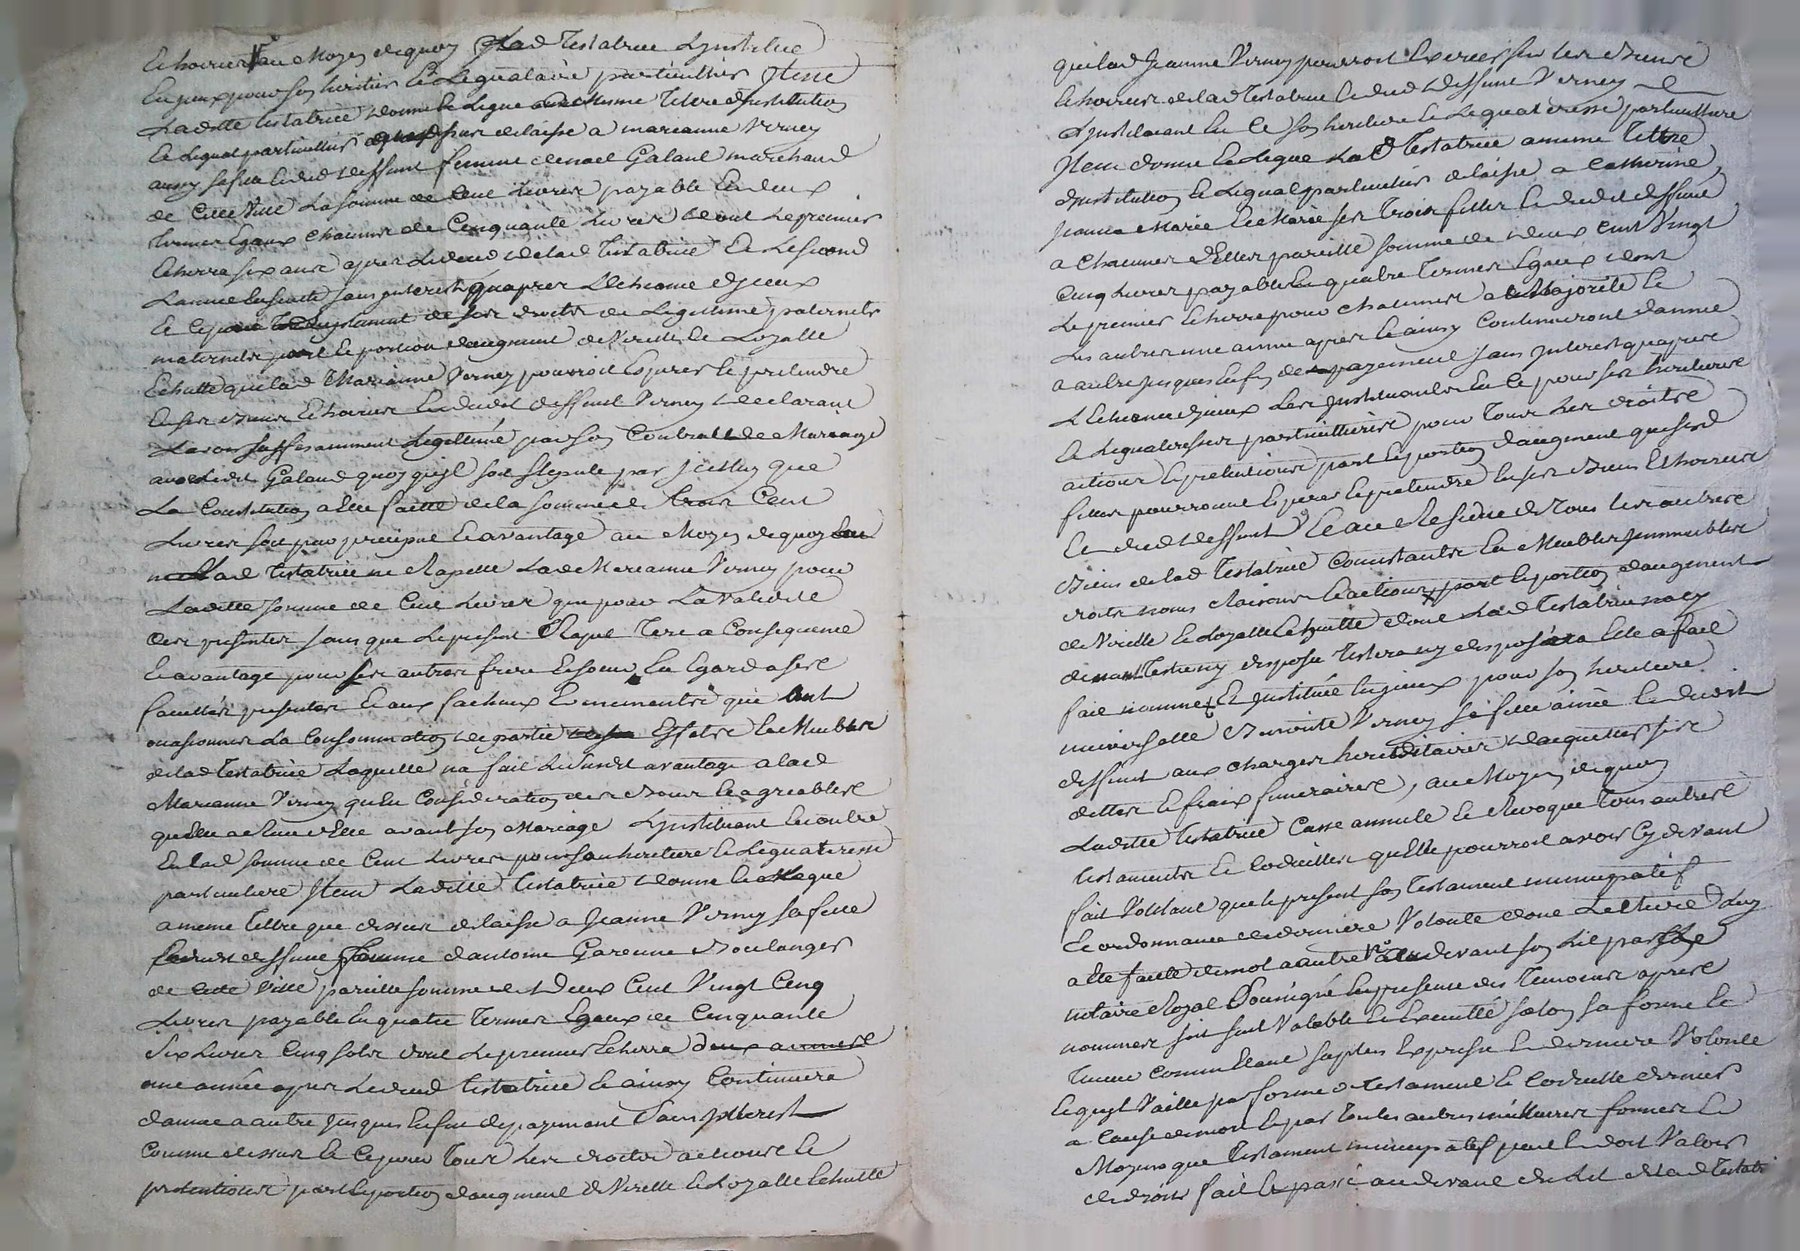 Et hoirier au Moyen de quoy Lad Testatrice L'institue
En jceux pour son heritier Et Legualaire particullier Item
Ladite testatrice donne Et Legue Titere dInstitution
Et Legat particullier delaisse a marianne Verney
aussy sa fille Et dud deffunt femme de noel Galand marchand
de Cette Ville La somme de Cent Livres payable En deux
termes Egaux chacuns de Cinquante Livres dont Le premier
Echerra six ans apres Le deces de lad Testatrice Et Le second
Lannee Ensuite sans jnterest quapres L'Echeance djceux
Et Ce pour de ses droits de Legitime paternels
maternels part Et portion daugment de Virille Et Loyalle
Echutte que lad Marianne Verney pourroit Esperer Et pretendre
En ses Biens Et hoirier Et dudit deffunt Verney declarant
Lavoir suffisamment Legittimé par son Contrat de Mariage
avec Ledit Galand quoy qu'jl soit stipulé par jcelluy que
La Constitution a Elle faitte de la somme de trois Cent
Livres soit pour precipu Et avantage au Moyen de quoy
Lad Testatrice ne Rapelle Lad Marianne Verney pour
Ladite somme de Cent Livres que pour La validité
des presentes sans que Le present Rapel Tere a Consequence
Et avantage pour ses autres frere Et soeur En Egard a ses
facultés presentes Et aux facheux Evenements qui ont
occasionnes La Consommation de partie Effets Et Meubles
de lad Testatrice Laquelle n'a fait Le susdit avantage a lad
Marianne Verney qu'En Consideration des Bons Et agreables
quElle a Elle avant son Mariage L'jnstituant En outre
En Lad somme de Cent Livres pour son heritiere Et Legualeresse
particuliere Item Ladite Testatrice donne Et Legue
a meme Tittre que dessus delaisse a Jeanne Verney sa fille
Et dudit deffunt femme d'antoine Garenne Boulanger
de Cette Ville pareille somme de Deux Cent Vingt Cinq
Livres payable En quatre Termes Egaux de Cinquante
Six Livres Cinq sols dont Le premier Echerra deux annees
une année apres Le deces testatrice Et ainsy Continuera
dannee a autre jusques En fin de payement Sans jnterest
Comme dessus Et Ce pour Tous Les droits actions Et
pretentions part Et portion daugment de Virille Et Loyalle Echutte
que lad Jeanne Verney pourroit Exercer sur Les Biens
Et hoirier de lad Testatrice Et dud deffunt Verney
L'jnstituant En Ce son heritiere Et Legualeresse particulliere
Item donne Et Legue Lad Testatrice a meme Tittre
dinstitution Et Legat particullier delaisse a Catherine,
Jeanne Marie Et Marie ses Trois filles Et dudit deffunt
a chacunes d'Elles pareille somme de deux Cent Vingt
Cinq Livres payable En quatre Termes Egaux dont
Le premier Echerra pour chacunes a la Majorité Et
Les autres une annee apres Et ainsy Continueront dannee
a autre jusques En fin de payement sans jnterest quapres
L'Echeance djceux Les jnstituants En Ce pour ses heritieres
Et Legualeresses particullieres pour Tous Les droits
actions Et pretentions part Et portion daugment que sesd
filles pourront Esperer Et pretendre En ses Biens Et hoirier
Et dud deffunt Et au Residu de Tous Les autres
Biens de lad Testatrice Consistants En Meubles jmmeubles
droits noms Raisons Et actions part Et portion daugment
de Virille Et Loyalle Echutte dont Lad Testatrice na cy
devant Testé ny disposé Testera ny disposera Elle a fait
fait nommé Et jnstitué En jceux pour son heritiere
universelle Benoite Verney sa fille ainée Et dudit
deffunt aux charges hereditaires desquelles ses
dettes Et fraix funeraires, au Moyen de quoy
Ladite Testatrice Casse annulle Et Revoque Tous autres
testaments Et Codicilles qu'Elle pourroit avoir Cy devant
fait Voulant que le present son Testament nuncupatif
Et ordonnance de derniere Volonté dont Lecture Luy
a Ete faitte de mot a autre devant son Lit par
notaire Royal Soussigné En presence des Temoins apres
nommes soit sont Valable Et Executté selon sa forme Et
Teneur Comme Etant sa plus Expresse Et derniere Volonté
Et qu'jl Vaille par forme de Testament Et Codicille donnation
a Cause de mort Et par Toutes autres meilleures formes Et
Moyens que Testament nuncupatif peut Et doit Valoir
de droit fait Et passé au devant du Lit de lad Testatr